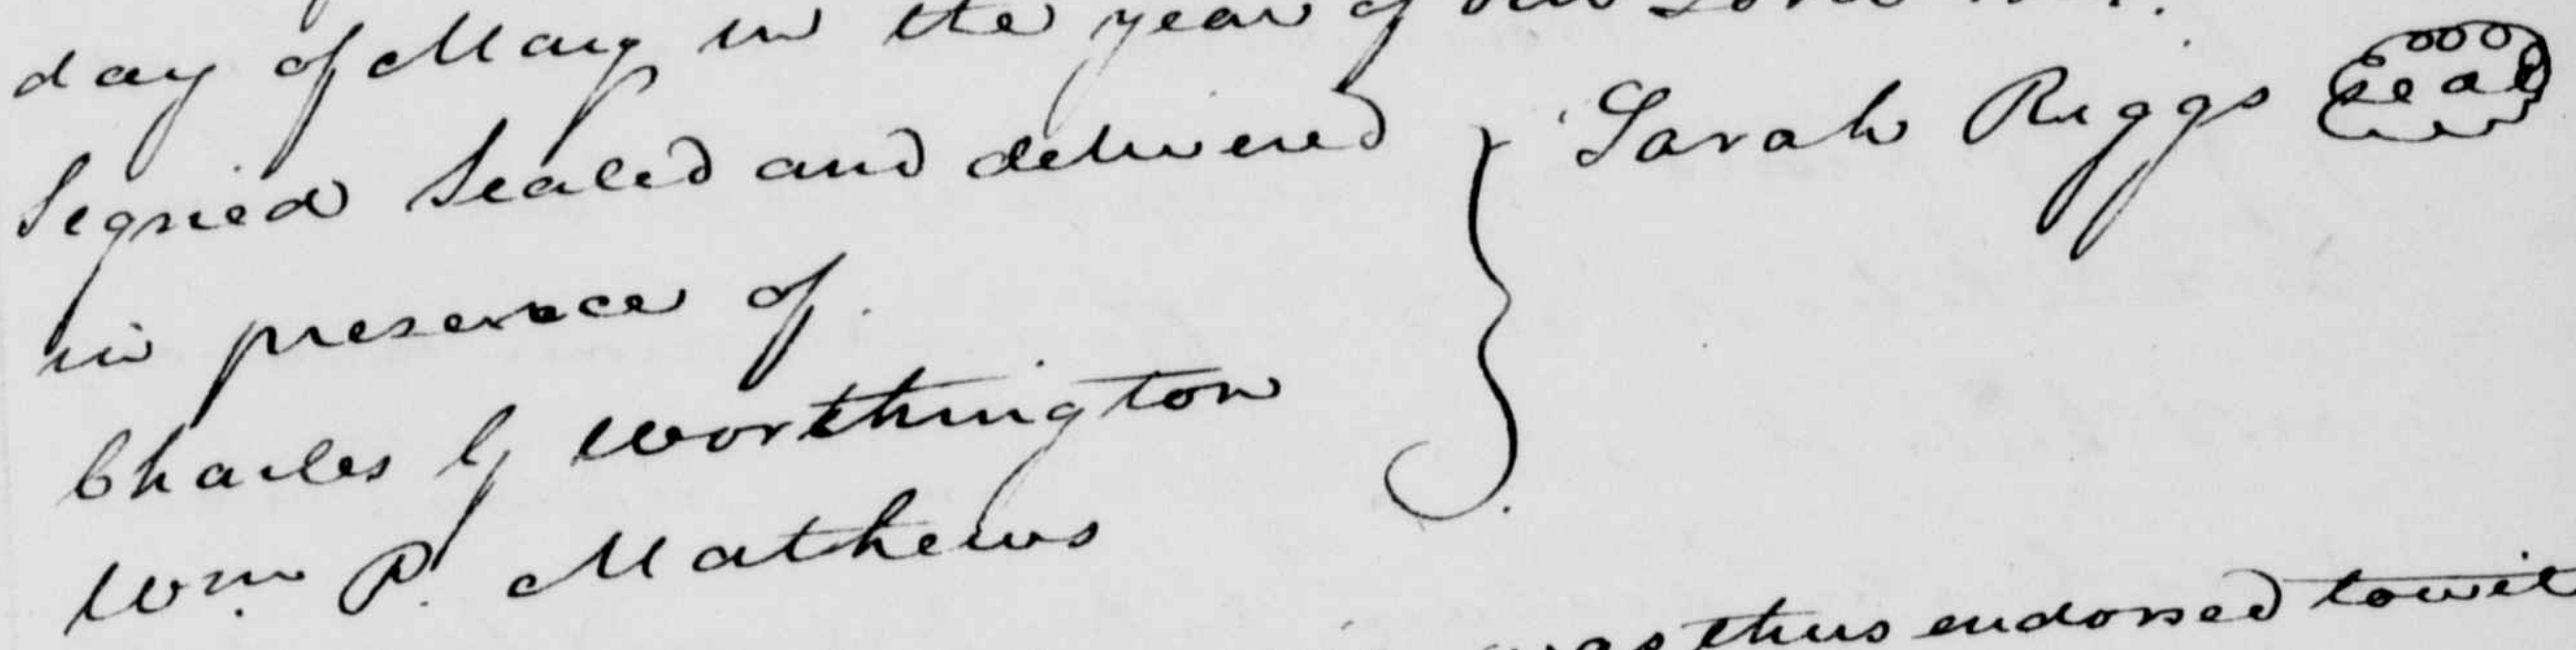 day of May in the year of our Lord
Signed Sealed and delivered
in presence of
Charles G Worthington
Wm. P. Mathews
Sarah Riggs Seal
was thus endorsed towit